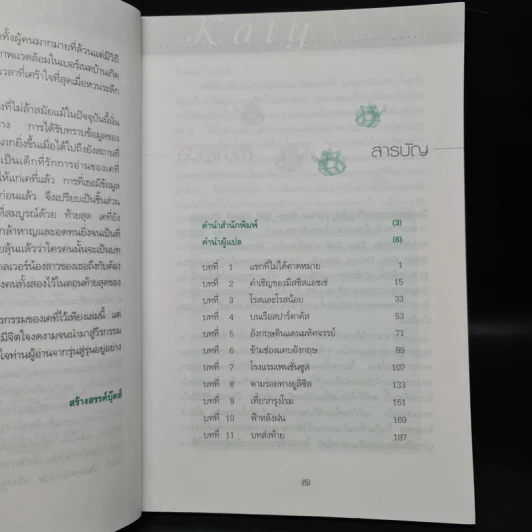 ทั้งผู้คนมากมายที่ล้วนแต่มีวิถี
ภาพแวดล้อมในเบอร์เนตบ้านเกิด
เวลาที่เศร้าใจที่สุดเมื่อหวนระลึก
ที่ไม่ล้าสมัยแม้ในปัจจุบันนี้นั้น
ทาง การได้รับทราบข้อมูลของ
มากยิ่งขึ้นเมื่อได้ไปถึงยังสถานที่
เป็นเด็กที่รักการอ่านของเคที
ให้แก่เคที่แล้ว การที่เธอมีข้อมูล
ก่อนแล้ว จึงเปรียบเป็นชิ้นส่วน
ที่สมบูรณ์ด้วย ท้ายสุด เคที่ยัง
กล้าหาญและอดทนยิ่งจนเป็นที่
ลุ้นแล้วว่าใครคนนั้นจะเป็นบท
ลเวอร์น้องสาวของเธอถึงกับต้อง
งคนทั้งสองไว้ในตอนท้ายสุดของ
รกรรมของเคที่ไว้เพียงเล่มนี้ แต่
มีจิตใจงดงามจนนำมาสู่วีรกรรม
ใจท่านผู้อ่านจากรุ่นสู่รุ่นอยู่อย่าง
สร้างสรรค์บุ๊คส์
Katy
สารบัญ
คำนำสำนักพิมพ์ (3)
คำนำผู้แปล (6)
บทที่ 1 แขกที่ไม่ได้คาดหมาย 1
บทที่ 2 คำเชิญของมิสซิสแอชเช่ 15
บทที่ 3 โรสและโรสน้อย 33
บทที่ 4 บนเรือสปาร์ตาคัส 53
บทที่ 5 อังกฤษดินแดนมหัศจรรย์ 71
บทที่ 6 ข้ามช่องแคบอังกฤษ 89
บทที่ 7 โรงแรมเพนชั่นซูส 107
บทที่ 8 ตามรอยทางยูลิซิส 133
บทที่ 9 เที่ยวกรุงโรม 151
บทที่ 10 ฟ้าหลังฝน 169
บทที่ 11 บทส่งท้าย 187
(5)